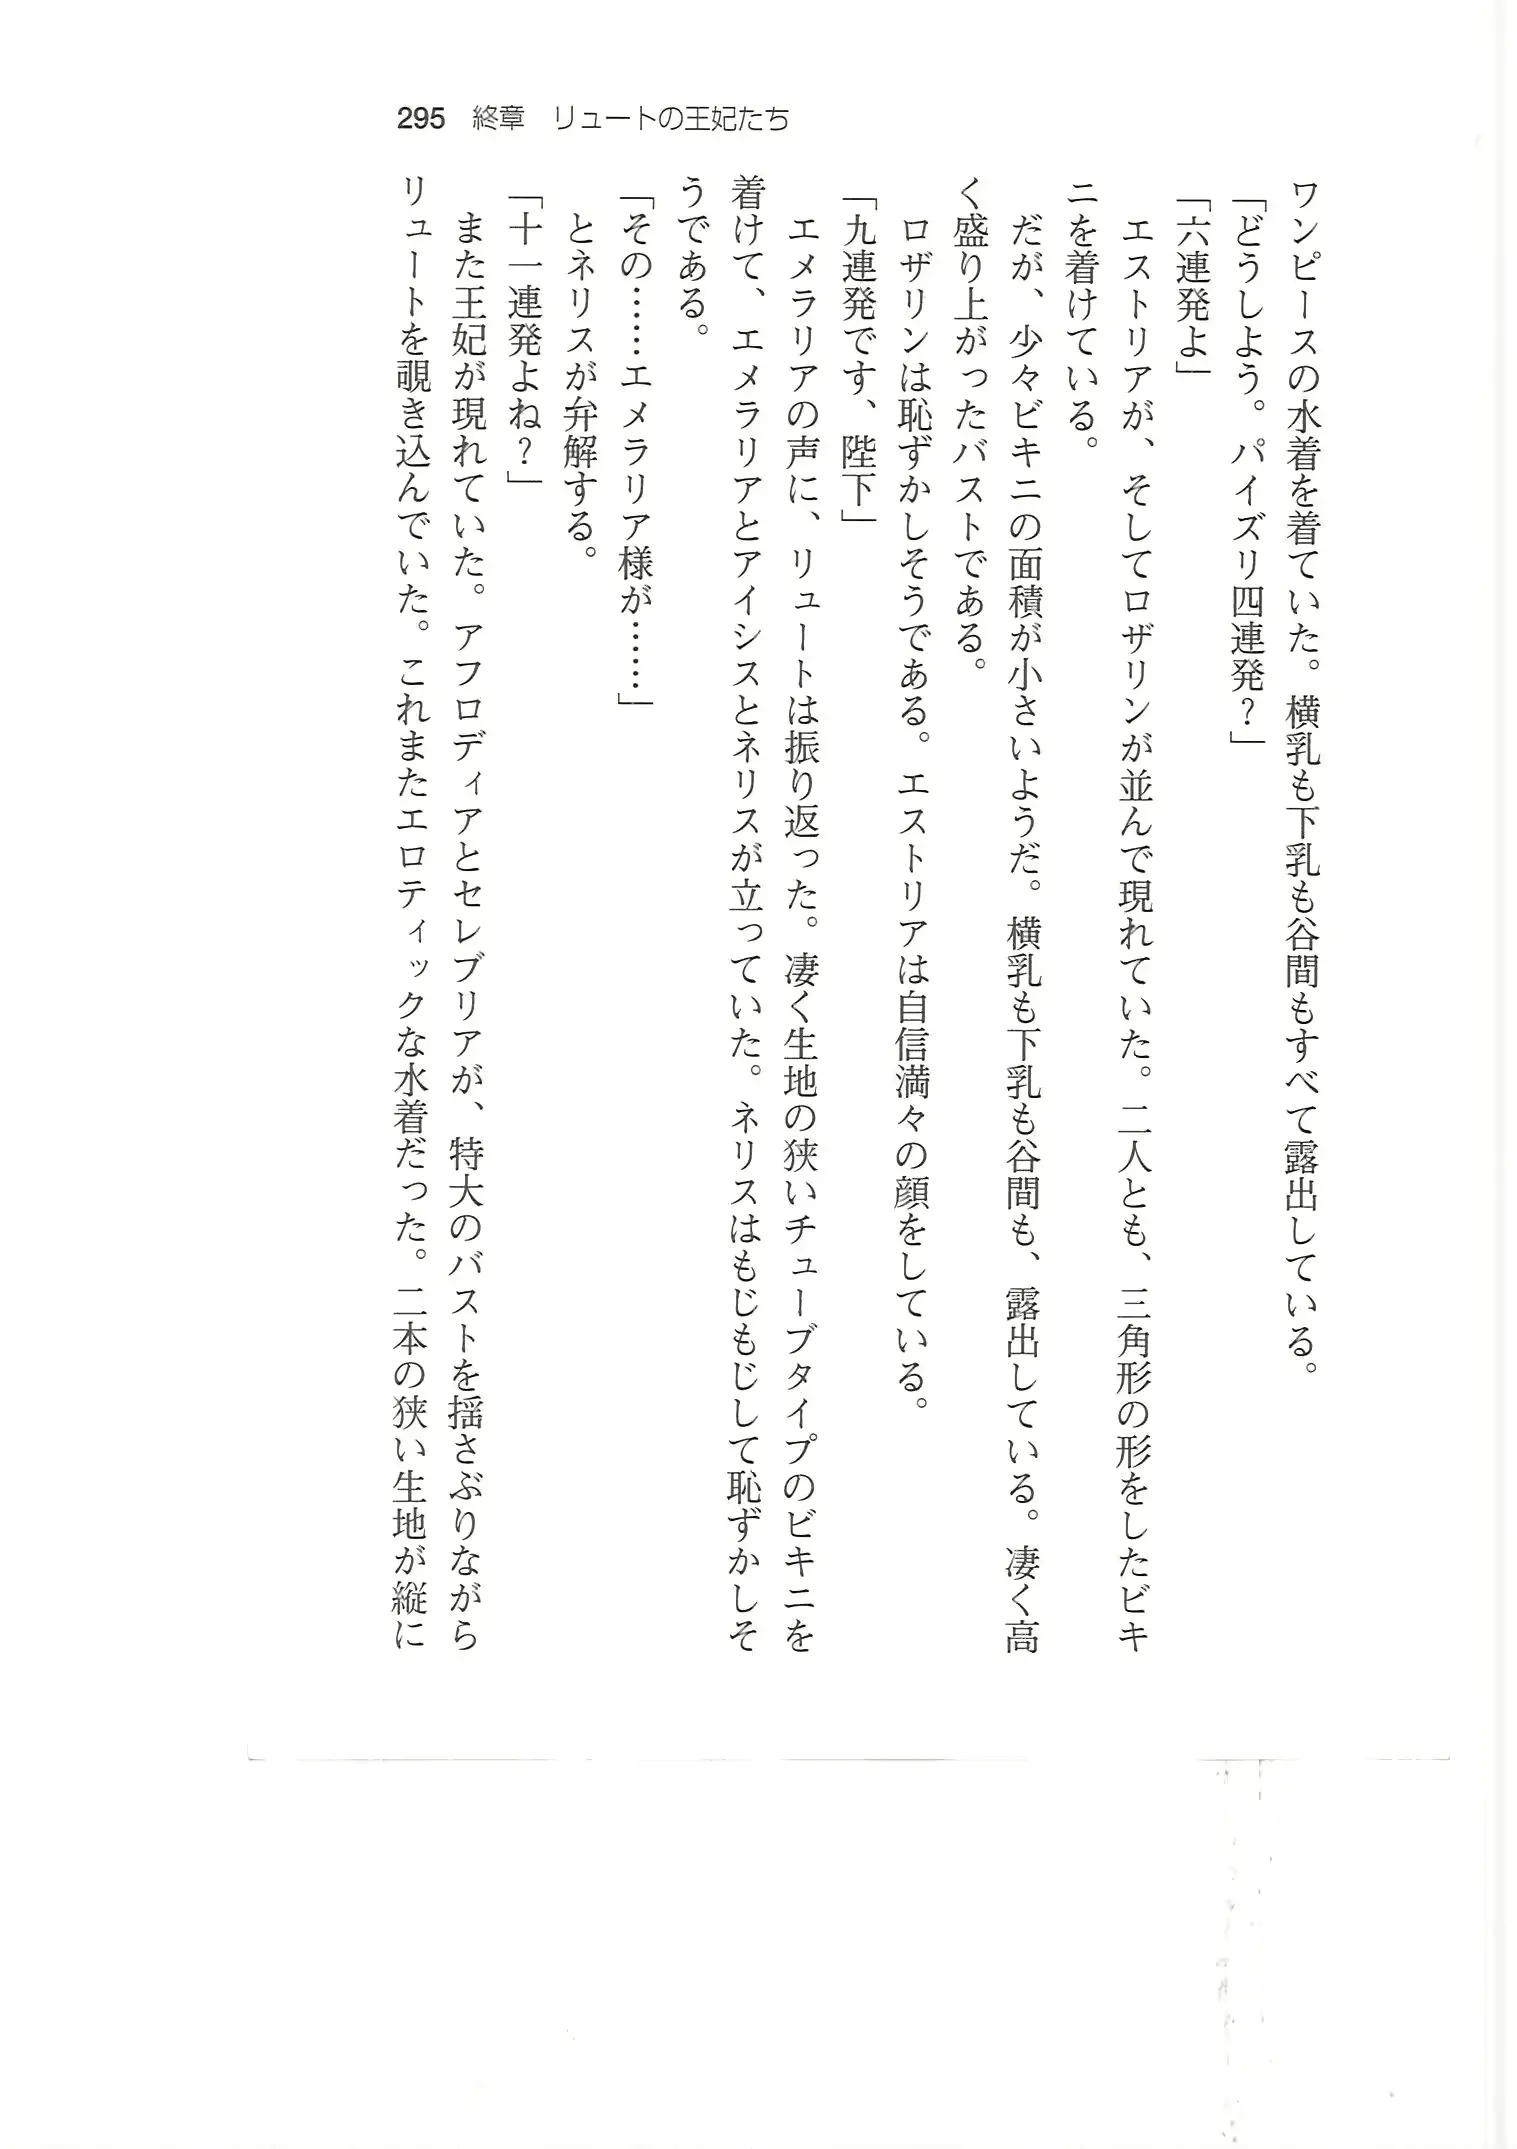 295 終章 リュートの王妃たち
ワンピースの水着を着ていた。横乳も下乳も谷間もすべて露出している。
「どうしよう。パイズリ四連発？」
「六連発よ」
エストリアが、そしてロザリンが並んで現れていた。二人とも、三角形の形をしたビキ
ニを着けている。
だが、少々ビキニの面積が小さいようだ。横乳も下乳も谷間も、露出している。凄く高
く盛り上がったバストである。
ロザリンは恥ずかしそうである。エストリアは自信満々の顔をしている。
「九連発です、陛下」
エメラリアの声に、リュートは振り返った。凄く生地の狭いチューブタイプのビキニを
着けて、エメラリアとアイシスとネリスが立っていた。ネリスはもじもじして恥ずかしそ
うである。
「その……エメラリア様が……」
とネリスが弁解する。
「十一連発よね？」
また王妃が現れていた。アフロディアとセレブリアが、特大のバストを揺さぶりながら
リュートを覗き込んでいた。これまたエロティックな水着だった。二本の狭い生地が縦に